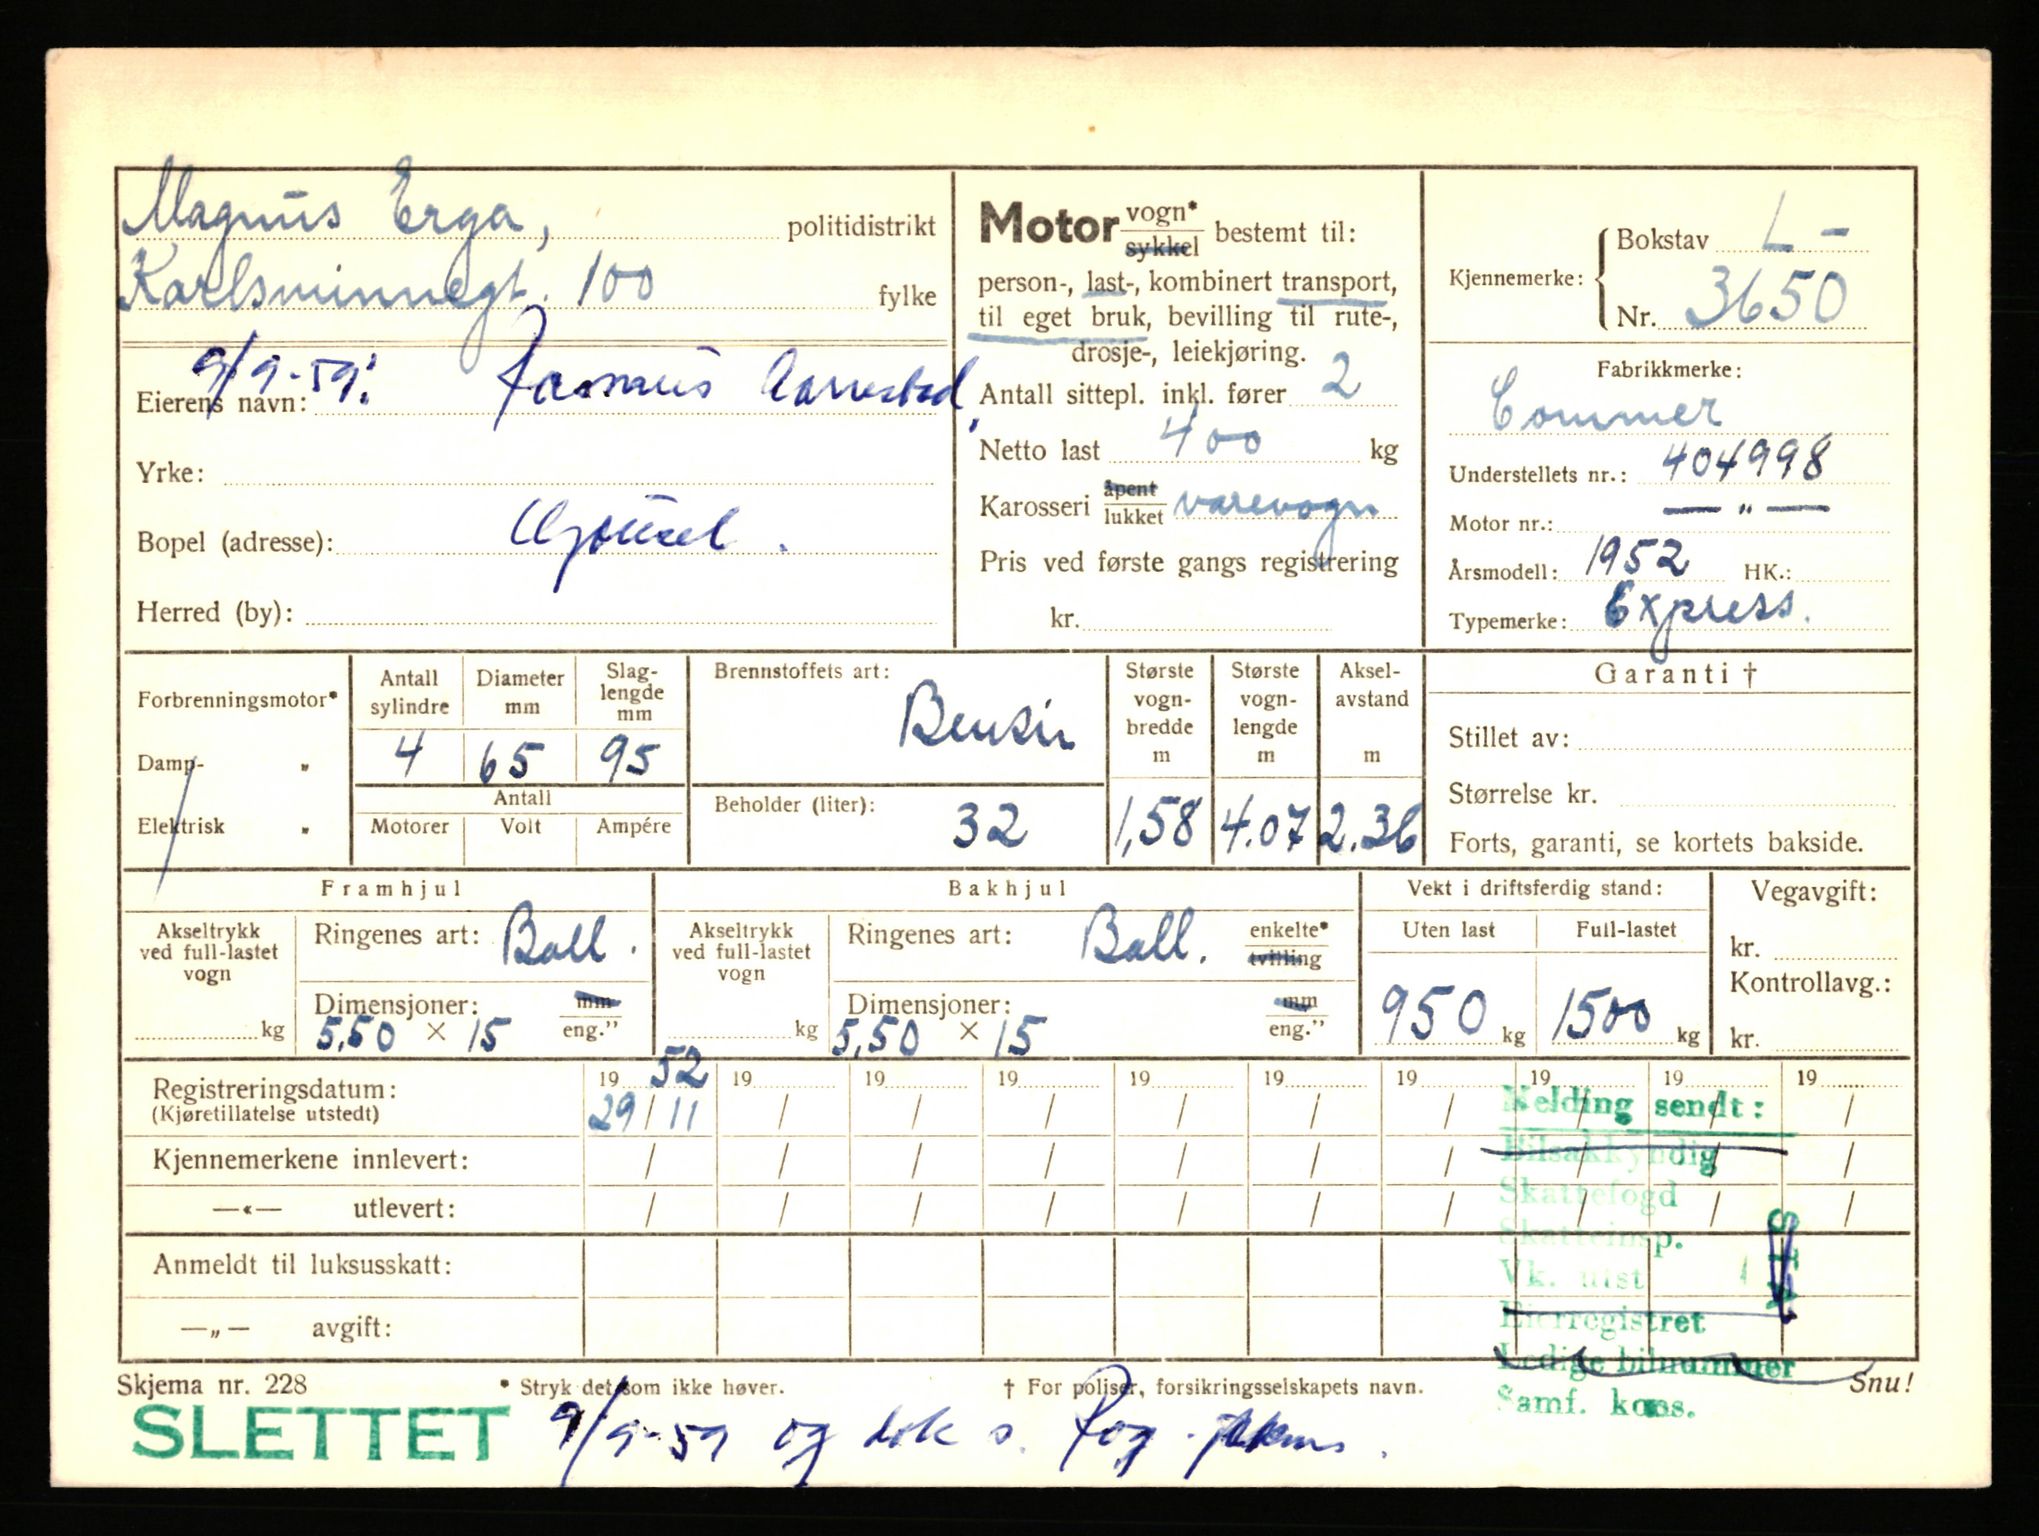 Magnus Erga, politidistrikt
Karlsminnegt. 100 fylke
9/9-59: Rasmus Aarrestad,
Eierens navn:
Yrke:
Bopel (adresse):
Herred (by):
Motor vogn* sykkel bestemt til:
person-, last-, kombinert transport,
til eget bruk, bevilling til rute-,
drosje-, leiekjøring.
Antall sittepl. inkl. fører 2
Netto last 400 kg
Karosseri åpent lukket varevogn
Pris ved første gangs registrering
kr.
Kjennemerke: Bokstav L-
Nr. 3650
Fabrikkmerke:
Commer
Understellets nr.: 404998
Motor nr.: — " —
Årsmodell: 1952 HK.:
Typemerke: Express.
Forbrenningsmotor*
Damp- „
Elektrisk „
Antall sylindre Diameter mm Slag-lengde mm
4 65 95
Antall
Motorer Volt Ampére
Brennstoffets art:
Bensin
Beholder (liter):
32
Største vogn-bredde m Største vogn-lengde m Aksel-avstand m
1,58 4.07 2.36
Garanti †
Stillet av:
Størrelse kr.
Forts, garanti, se kortets bakside.
Framhjul
Akseltrykk ved full-lastet vogn
kg
Ringenes art: Ball.
Dimensjoner: mm
5,50 × 15 eng."
Bakhjul
Akseltrykk ved full-lastet vogn
kg
Ringenes art: Ball. enkelte* tvilling
Dimensjoner: mm
5,50 × 15 eng."
Vekt i driftsferdig stand:
Uten last Full-lastet
950 kg 1500 kg
Vegavgift:
kr.
Kontrollavg.:
kr.
Registreringsdatum: 19 52 19 19 19 19 19 19 19 19 19
(Kjøretillatelse utstedt) 29/11 / / / / / / / / /
Kjennemerkene innlevert: / / / / / / / / / /
—«— utlevert: / / / / / / / / / /
Anmeldt til luksusskatt:
—„— avgift:
Melding sendt:
Bilsakkyndig
Skattefogd
Skatteinsp.
Vk. utst
Eierregistret
Ledige bilnummer
Samf. kons.
Skjema nr. 228 * Stryk det som ikke høver. † For poliser, forsikringsselskapets navn. Snu!
SLETTET 9/9-59 og dok s.